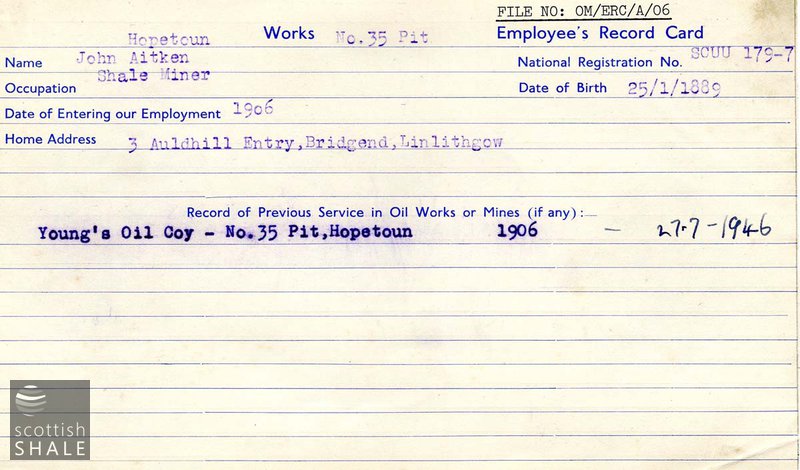 FILE NO: OM/ERC/A/06
Hopetoun Works No.35 Pit Employee's Record Card
Name John Aitken National Registration No. SCUU 179-7
Occupation Shale Miner Date of Birth 25/1/1889
Date of Entering our Employment 1906
Home Address 3 Auldhill Entry,Bridgend,Linlithgow
Record of Previous Service in Oil Works or Mines (if any):—
Young's Oil Coy - No.35 Pit,Hopetoun 1906 - 27.7-1946
scottish
SHALE